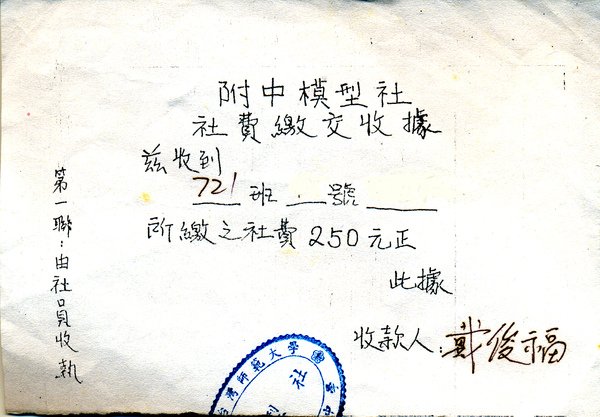 附中模型社
社費繳交收據
茲收到
721班 . 號
所繳之社費250元正
此據
收款人:戴俊福
第一聯:由社員收執
台灣師範大學
社